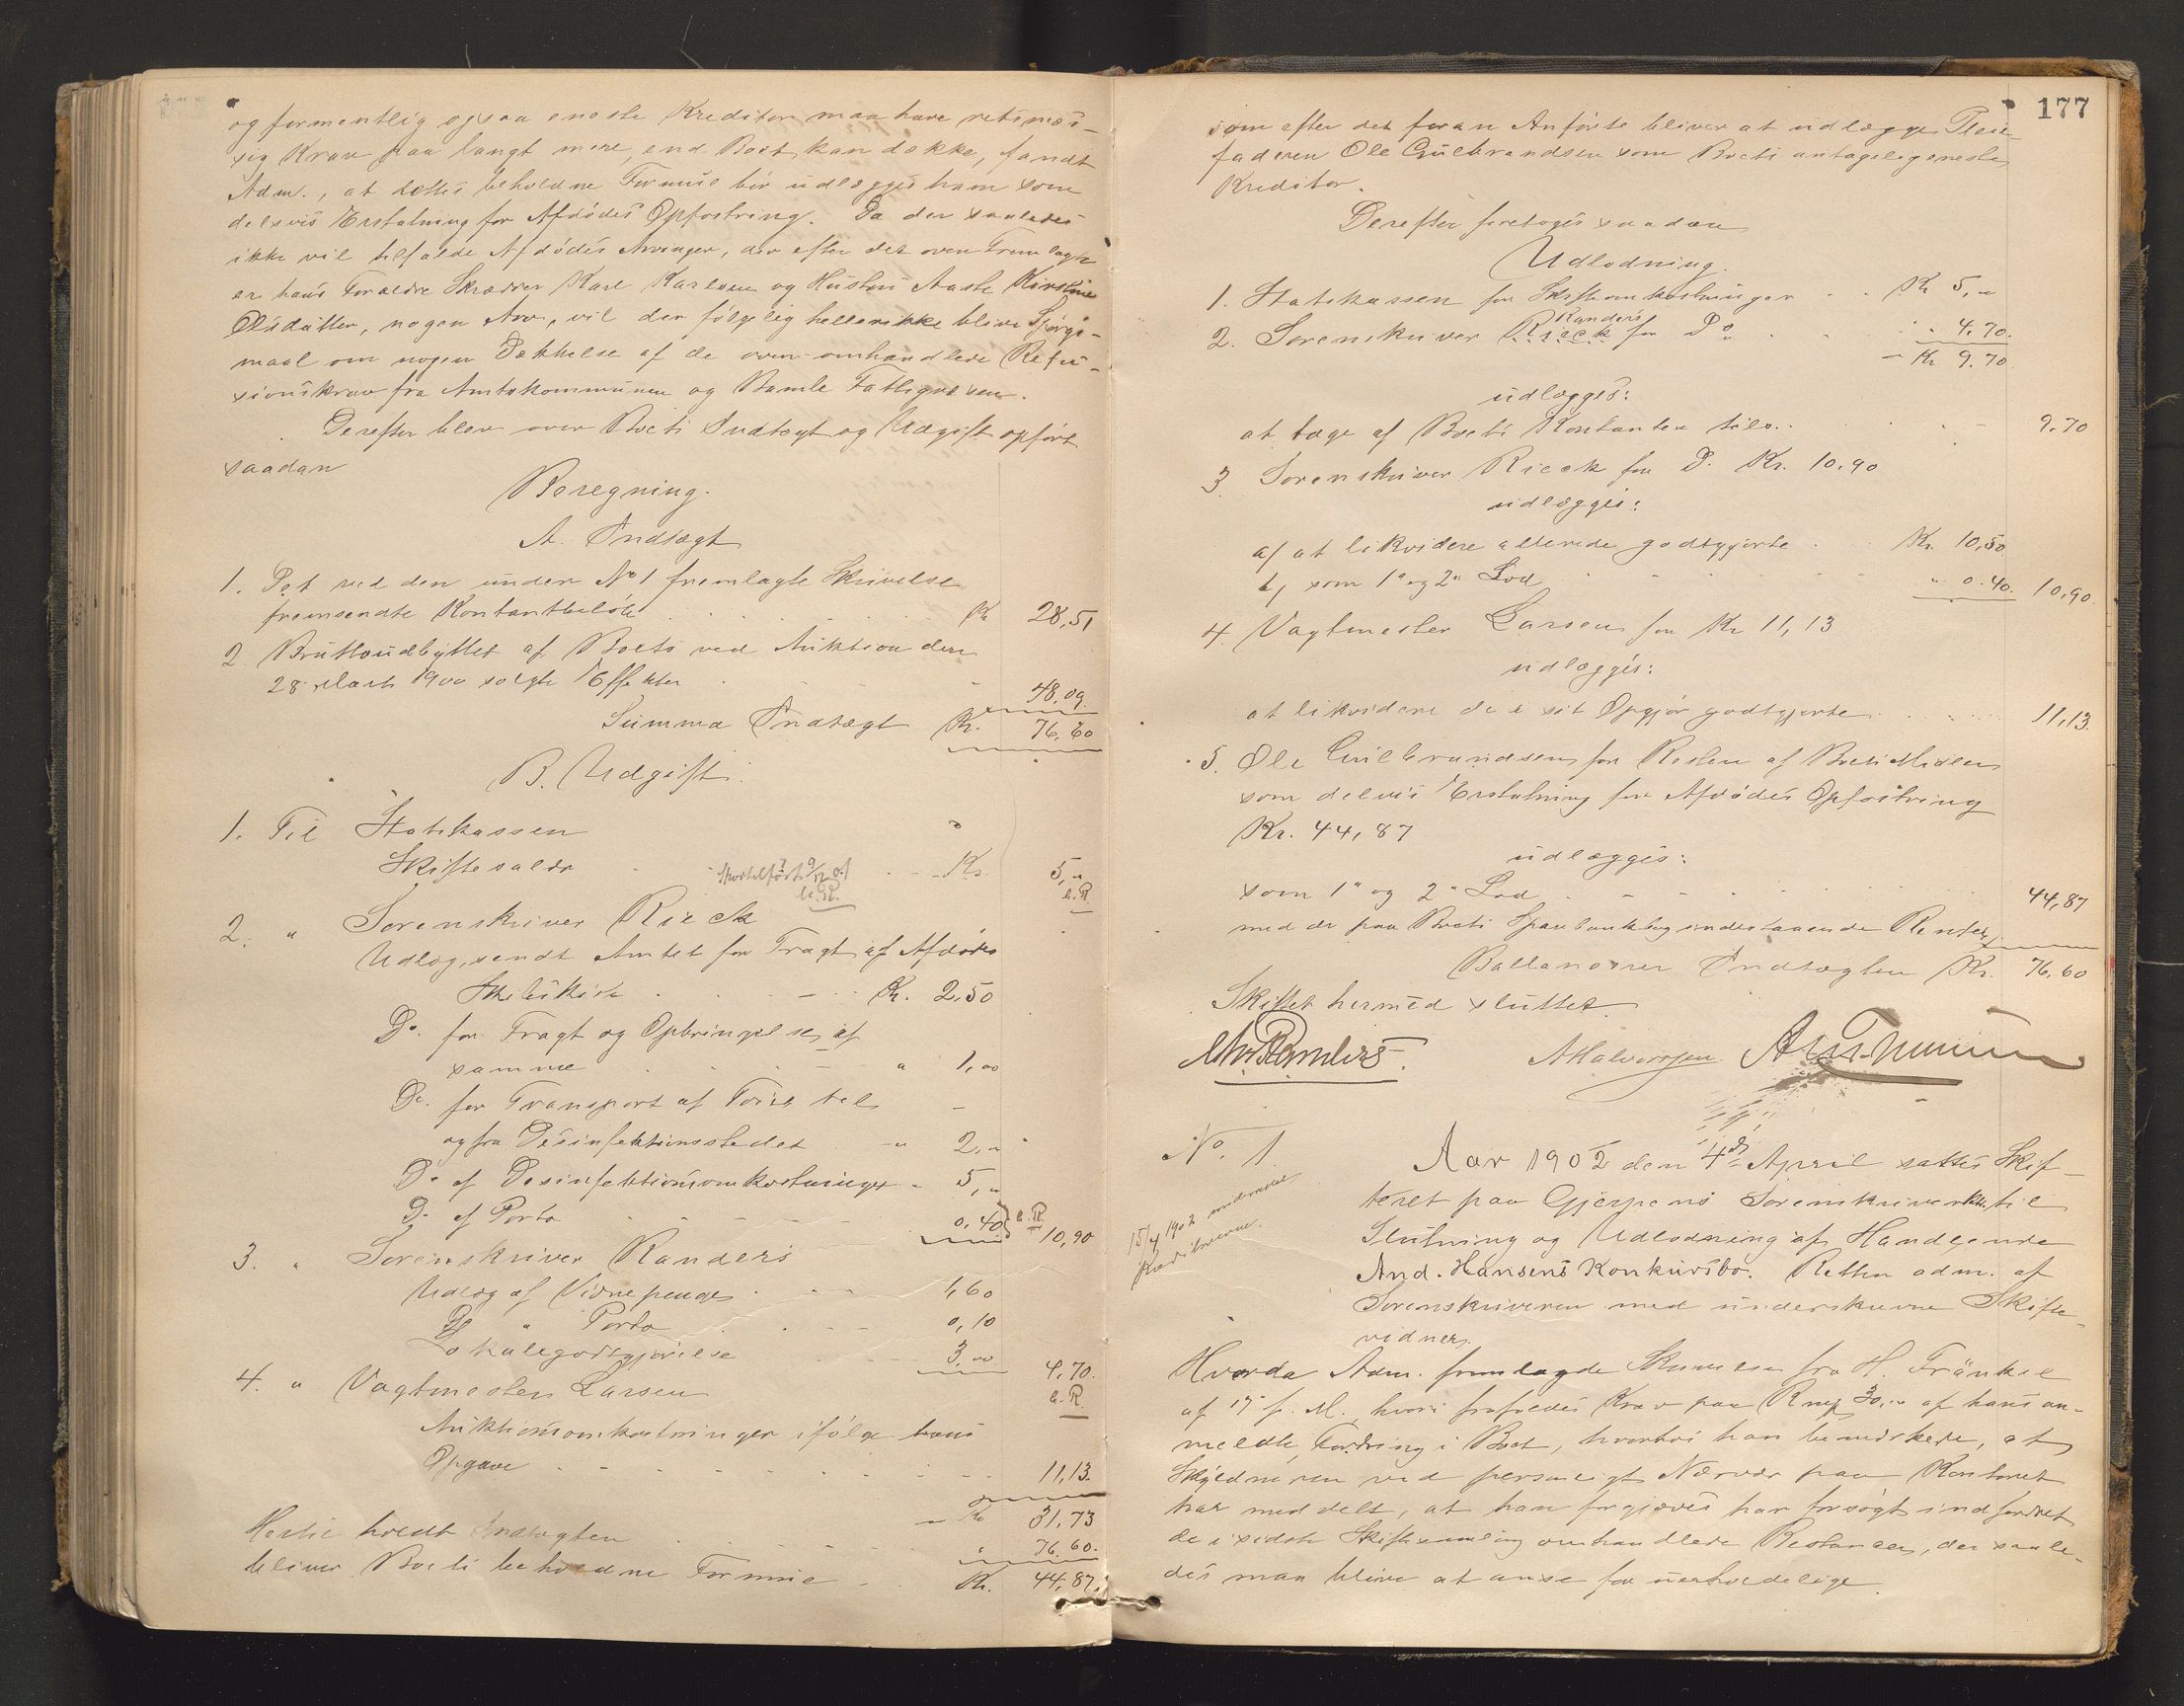 og formentlig ogsaa eneste Kreditor maa have retsmæs-
sig Krav paa langt mere, end Boet kan dække, fandt
Adm., at dettes beholdne Formue bør udlægges ham som
delsvis Erstatning for Afdødes Opfostring. Da der saaledes
ikke vil tilfalde Afdødes Arvinger, der efter det oven Fremlagte
er hans Forældre Skrædder Karl Karlsen og Hustru Aaste Kirstine
Olsdatter, nogen Arv, vil der følgelig heller ikke blive Spørgs-
maal om nogen Dækkelse af de oven omhandlede Refu-
sionskrav fra Amtskommunen og Bamle Fattigvæsen.
Derefter blev over Boets Indtægt og Udgift opført
saadan
Beregning.
A. Indtægt
1. Det ved den under No 1 fremlagte Skrivelse
fremsendte Kontantbeløb Kr 28,51
2 Bruttoudbyttet af Boets ved Auktion den
28 Marts 1900 solgte Effekter 48,09
Summa Indtægt Kr. 76,60
B. Udgift.
1. Til Statskassen
Skiftesalær Kr. 5,"
Sportelført 9/12 01
C.R.
2. " Sorenskriver Rieck
Udlæg, sendt Amtet for Fragt af Afdødes
Skibskiste Kr. 2,50
Do. for Fragt og Opbringelse af
samme " 1,00
Do. for Transport af Tøiet til
og fra Desinfektionsstedet " 2,"
Do af Desinfektionsomkostninger " 5,"
Do af Porto 0,40 10,90
3. " Sorenskriver Randers
Udlæg af Vidnepenge 1,60
Do " Porto 0,10
Lokalegodtgjørelse 3,00 4,70.
4. " Vagtmester Larsen
Auktionsomkostninger ifølge hans
Opgave 11,13.
Kr 31,73
Hertil holdt Indtægten " 76,60.
bliver Boets beholdne Formue Kr. 44,87.
177
som efter det foran Anførte bliver at udlægge Pleie-
faderen Ole Gulbrandsen som Boets antagelig eneste
Kreditor.
Derefter foretoges saadan
Udlodning.
1. Statskassen for Skifteomkostninger Kr 5,"
Randers
2. Sorenskriver Rieck for Do " 4.70.
Kr 9.70
udlægges:
at tage af Boets Kontanter tils. 9.70
3. Sorenskriver Rieck for Do. Kr. 10,90
udlægges:
a/ at likvidere allerede godtgjorte Kr. 10,50
b/ som 1" og 2" Lod " 0.40. 10,90.
4. Vagtmester Larsen for Kr 11,13
udlægges:
at likvidere de i sit Opgjør godtgjorte 11,13.
5. Ole Gulbrandsen for Resten af Boets Midler
som delvis Erstatning for Afdødes Opfostring
Kr. 44,87
udlægges:
som 1" og 2" Lod 44,87
med de paa Boets Sparebankbog indestaaende Renter.
Ballancerer Indtægten Kr. 76,60
Skiftet hermed sluttet.
Chr Randers. A Halvorsen
No. 1.
15/4 1902 underrettet
Kreditorerne.
Aar 1902 den 4de April sattes Skif-
teret paa Gjerpens Sorenskriverktr. til
Slutning og Udlodning af Handlende
And. Hansens Konkursbo. Retten adm. af
Sorenskriveren med underskrevne Skifte-
vidner.
Hvorda Adm. fremlagde Skrivelse fra H. Fränkel
af 17 f. M., hvori frafaldes Krav paa Rmk 30,00 af hans an-
meldte Fordring i Boet, hvorhos han bemærkede, at
Skyldneren ved personligt Nærvær paa Kontoret
har meddelt, at han forgjæves har forsøgt indfordret
de i sidste Skiftesamling omhandlede Restancer, der saale-
des maa blive at anse for uerholdelige.